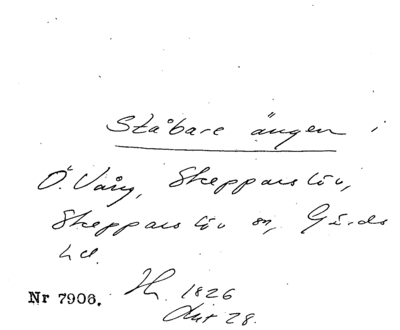 Ståbare ängen i
Ö. Vång, Skepparslöv,
Skepparslöv sn, Gärds
hd.
Nr 7906. Hr. 1826
Akt 28.